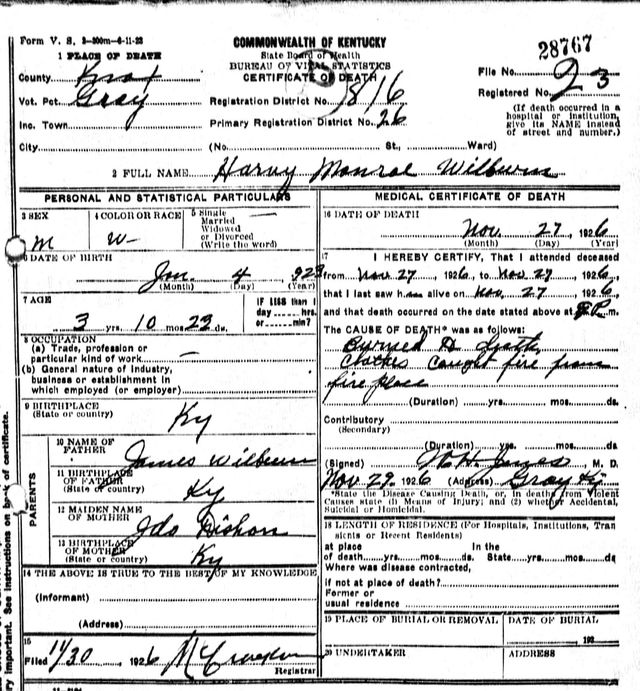 Form V. S. 3-300m-6-11-23
COMMONWEALTH OF KENTUCKY
State Board of Health
BUREAU OF VITAL STATISTICS
CERTIFICATE OF DEATH
28767
1 PLACE OF DEATH
County Knox
File No.
Vot. Pct. Gray
Registration District No. 1816
Registered No. 23
Inc. Town
Primary Registration District No. 26
(If death occurred in a hospital or institution, give its NAME instead of street and number.)
City (No. St., Ward)
2 FULL NAME Harvy Monroe Wilburn
PERSONAL AND STATISTICAL PARTICULARS
3 SEX M
4 COLOR OR RACE W
5 Single
Married
Widowed
or Divorced
(Write the word)
6 DATE OF BIRTH
Jan 4 1923
(Month) (Day) (Year)
7 AGE
3 yrs. 10 mos. 23 ds.
IF LESS than 1
day hrs.
or min?
8 OCCUPATION
(a) Trade, profession or
particular kind of work
(b) General nature of industry,
business or establishment in
which employed (or employer)
9 BIRTHPLACE
(State or country) Ky
PARENTS
10 NAME OF
FATHER James Wilburn
11 BIRTHPLACE
OF FATHER
(State or country) Ky
12 MAIDEN NAME
OF MOTHER Ida
13 BIRTHPLACE
OF MOTHER
(State or country) Ky
14 THE ABOVE IS TRUE TO THE BEST OF MY KNOWLEDGE
(Informant)
(Address)
15
Filed 11/30 1926
Registrar
MEDICAL CERTIFICATE OF DEATH
16 DATE OF DEATH
Nov 27, 1926
(Month) (Day) (Year)
17 I HEREBY CERTIFY, That I attended deceased
from Nov 27 1926, to Nov 27 1926,
that I last saw h alive on Nov 27 1926,
and that death occurred on the date stated above at m.
The CAUSE OF DEATH* was as follows:
Burned to Death
Clothes caught fire from
fire place
(Duration) yrs. mos. ds.
Contributory
(Secondary)
(Duration) yrs. mos. ds.
(Signed) M. D.
Nov 29 1926 (Address) Gray Ky
*State the Disease Causing Death, or, in deaths from Violent
Causes state (1) Means of Injury; and (2) whether Accidental,
Suicidal or Homicidal.
18 LENGTH OF RESIDENCE (For Hospitals, Institutions, Tran
sients or Recent Residents)
at place In the
of death yrs. mos. ds. State yrs. mos. ds.
Where was disease contracted,
if not at place of death?
Former or
usual residence
19 PLACE OF BURIAL OR REMOVAL
DATE OF BURIAL
192
20 UNDERTAKER
ADDRESS
ry important. See instructions on back of certificate.